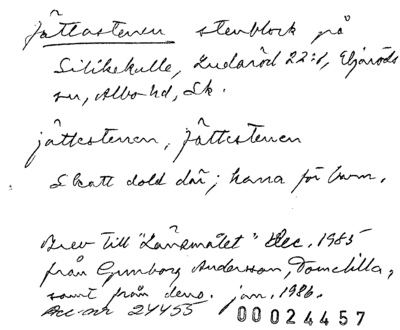 Jättastenen stenblock på
Silikekulle, Ludaröd 22:1, Eljaröds
sn, Albo hd, Sk.
jättestenen, Jättestenen
Skatt dold där; hana för barn.
Brev till "Länsmålet" dec. 1985
från Gunborg Andersson, Tomelilla,
samt från dens. jan. 1986.
Acc-nr 24455 00024457